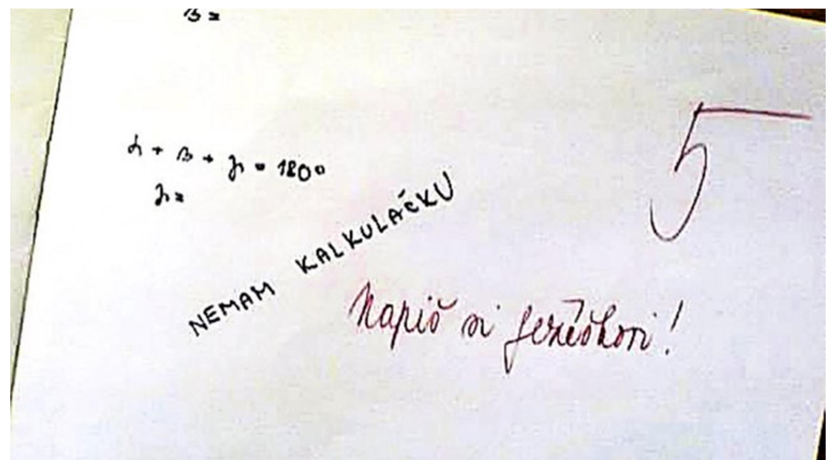 β =
α + β + γ = 180°
γ =
NEMAM KALKULAČKU
5
Napiš si Ježíškovi!